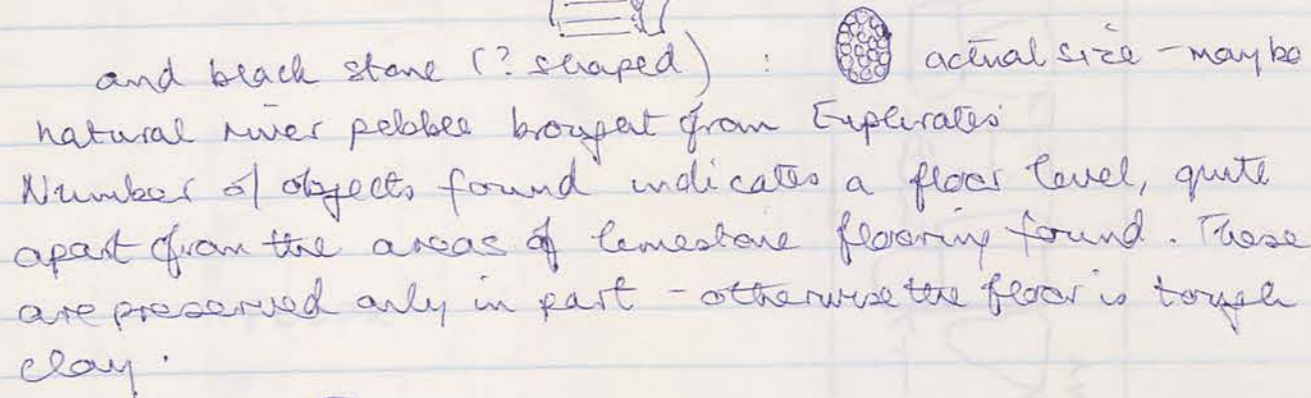 and black stone (? shaped) : actual size - maybe
natural river pebble brought from Euphrates
Number of objects found indicates a floor level, quite
apart from the areas of limestone flooring found. These
are preserved only in part - otherwise the floor is tough
clay.